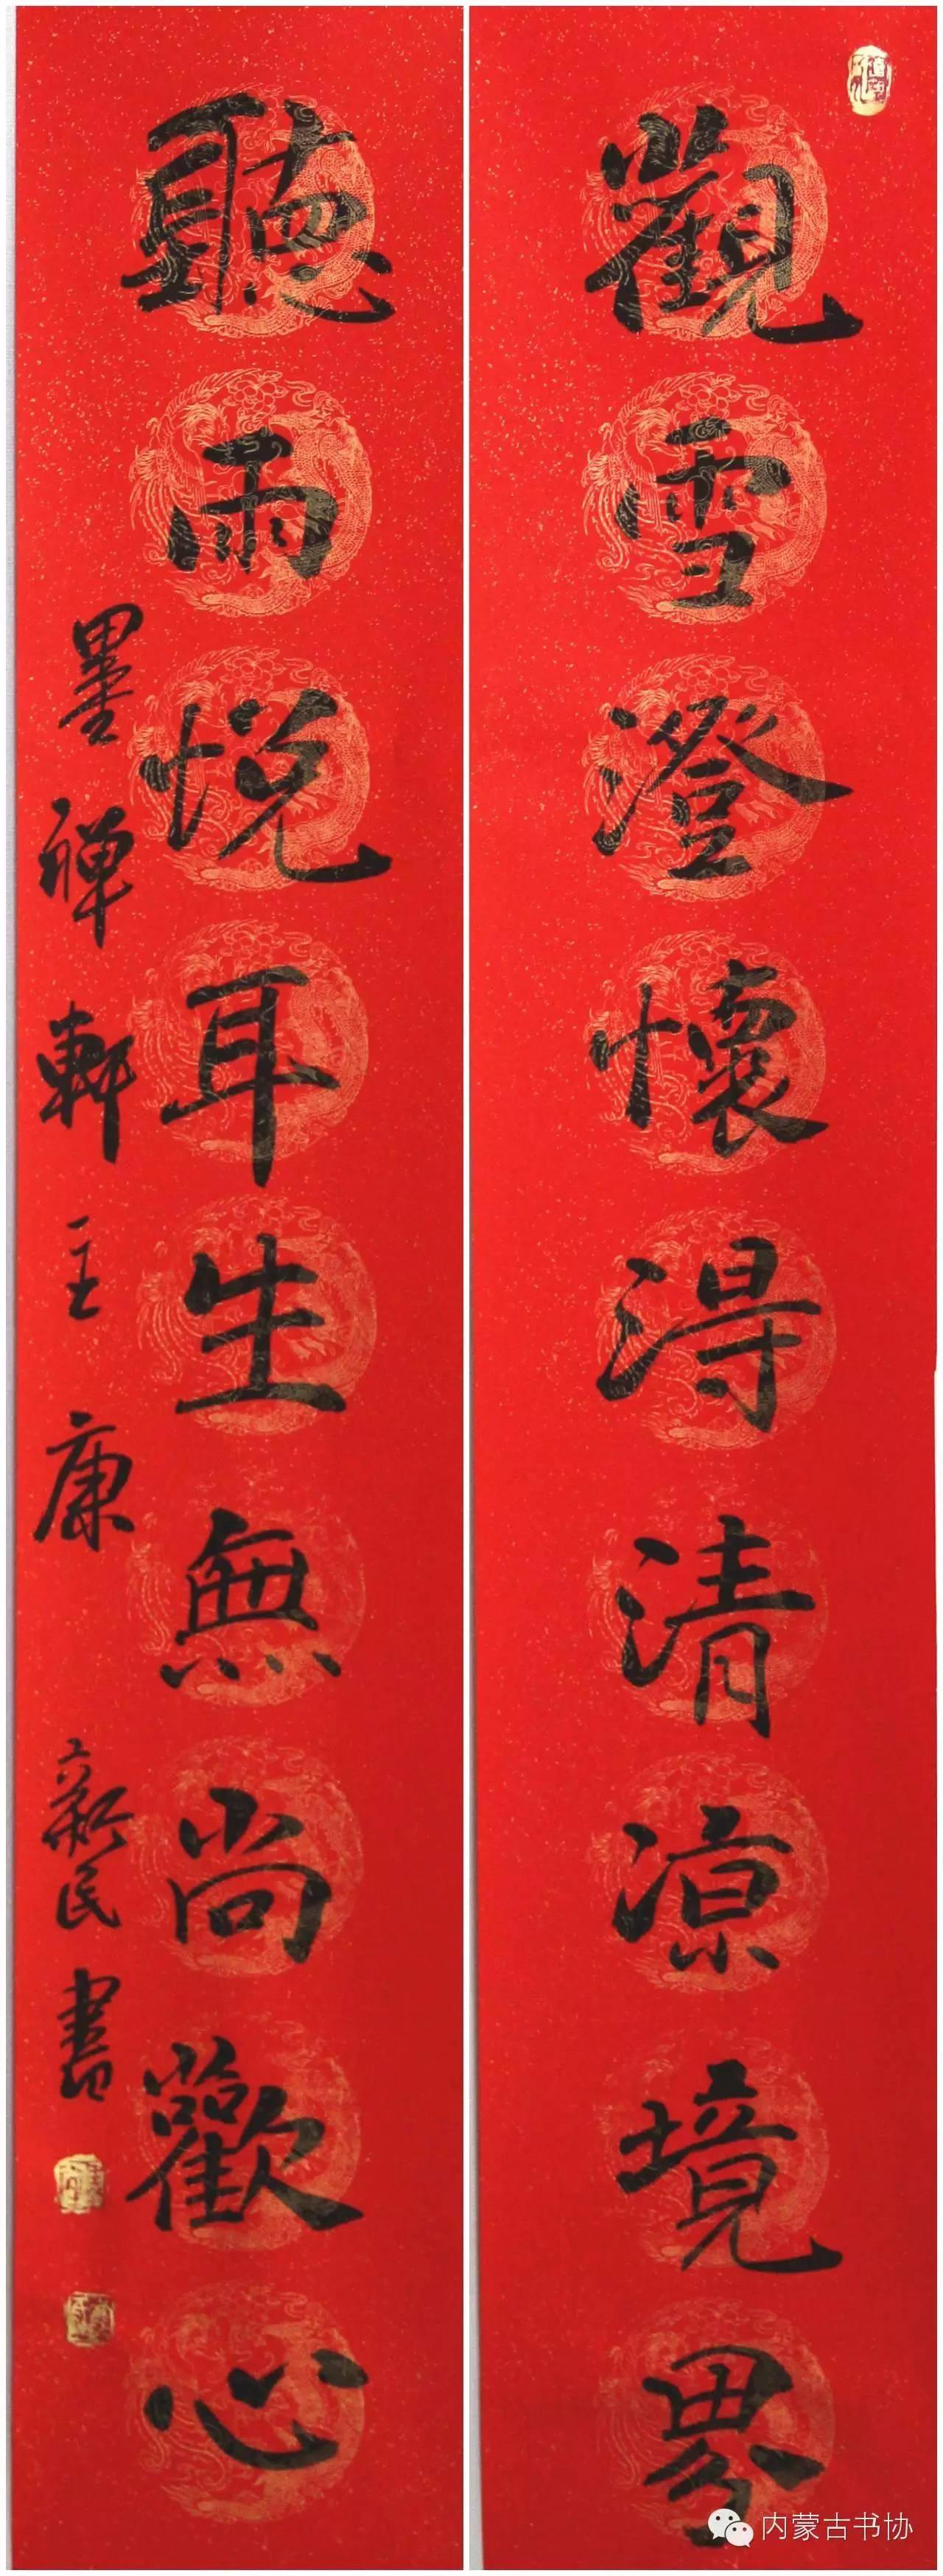 觀雪澄懷淂清凉境界
聽雨悦耳生無尚歡心
墨禅軒主康新民書
内蒙古书协